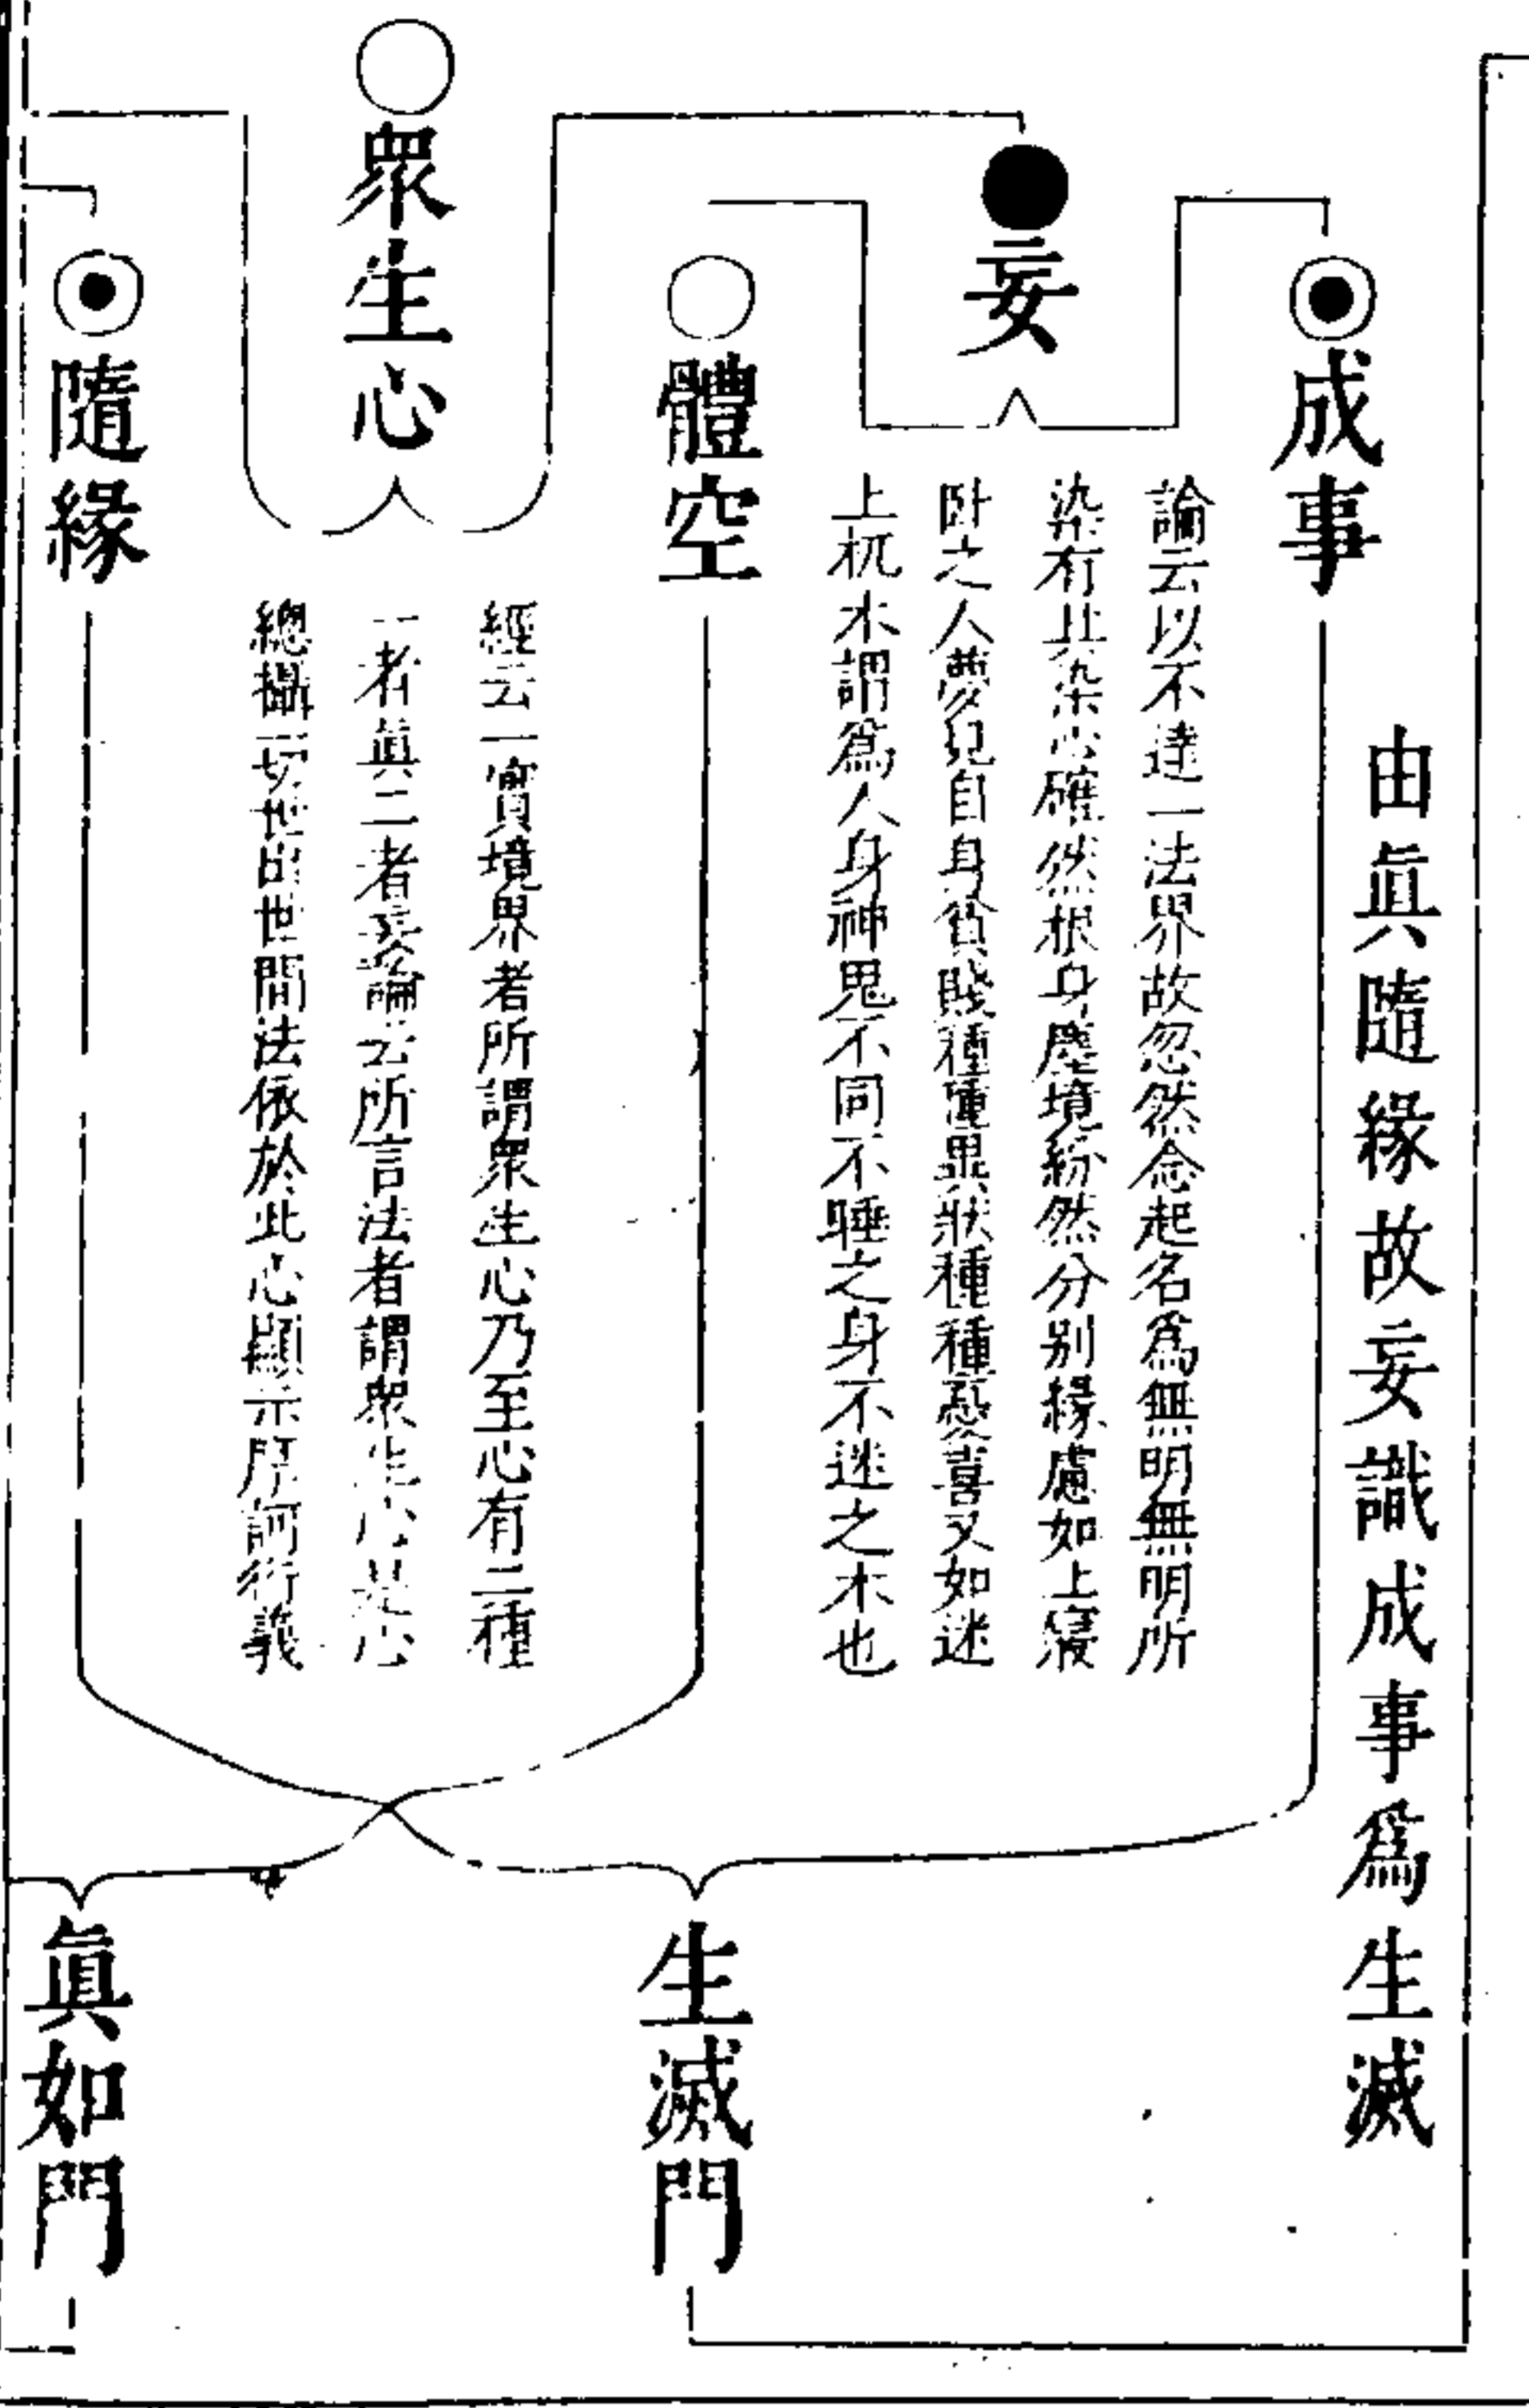 由眞隨緣故妄識成事爲生滅
成事
論云以不達一法界故忽然念起名爲無明無明所
染有其染心確然根身塵境紛然分別緣慮如上寢
臥之人夢見自身貧賤種種異狀種種恐喜又如迷
上杌木謂爲人身神鬼不同不睡之身不迷之木也
妄
體空
經云一實境界者所謂衆生心乃至心有二種
一者眞二者妄論云所言法者謂衆生心是心
總攝一切世出世間法依於此心顯示摩訶衍義
衆生心
隨緣
生滅門
眞如門